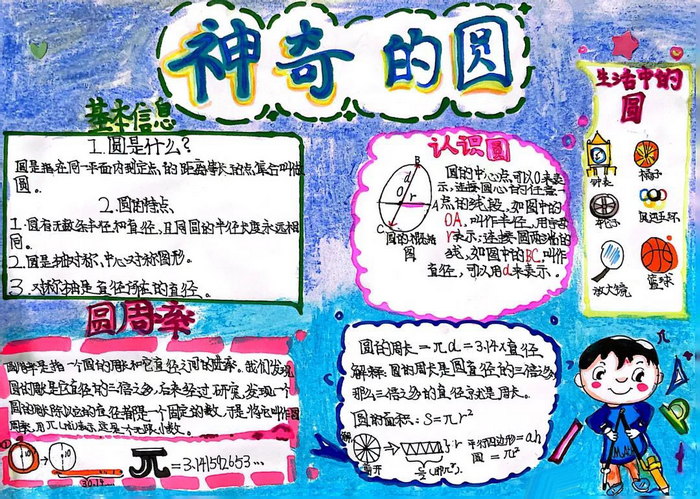 神奇的圆
基本信息
1.圆是什么?
圆是指在同一平面内到定点的距离等长的点集合叫做
圆。
2.圆的特点
1.圆有无数条半径和直径,且同圆的半径长度永远相
同。
2.圆是轴对称、中心对称图形。
3.对称轴是直径所在的直径。
认识圆
圆的中心点可以O来表
示,连接圆心的任意一
点的线段,如图中的
OA,叫作半径,用字母
r表示;连接圆两端的
线,如图中的BC,叫作
直径,可以用d来表示。
B
d
O
r
C
圆的概括
图
生活中的
圆
钟表
橘子
车轮
奥运五环
放大镜
篮球
圆周率
圆周率是指一个圆的周长和它直径之间的倍率。我们发现
圆的周长是它直径的三倍之多,后来经过研究,发现一个
圆的周长除以它的直径都是一个固定的数,于是将它叫作圆
周率,用π(pài)表示,这是一个无限小数。
π=3.141592653…
圆的周长=πd=3.14×直径
解释:圆的周长是圆直径的三倍多
那么三倍之多的直径就是周长。
圆的面积:S=πr²
剪开
r
平行四边形=ah
圆=πr²